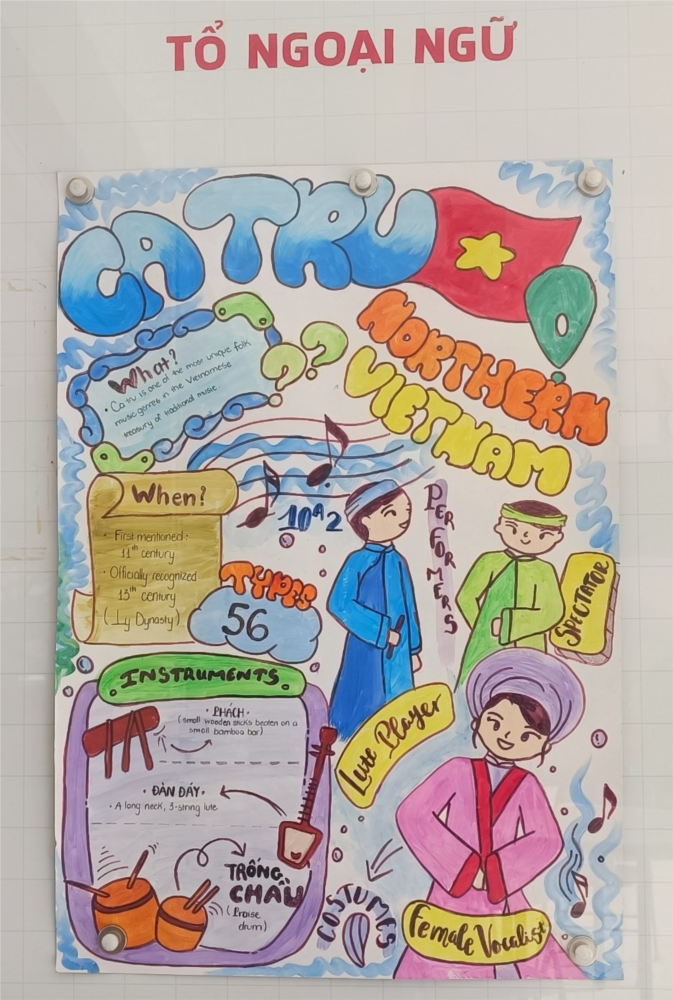 TỔ NGOẠI NGỮ
CA TRU
NORTHERN
VIETNAM
What?
• Ca tru is one of the most unique folk
music genres in the Vietnamese
treasury of traditional music.
When?
• First mentioned:
11th century
• Officially recognized
13th century
(Ly Dynasty)
10A2
TYPES
56
PERFORMERS
SPECTATOR
INSTRUMENTS
• PHÁCH •
(small wooden sticks beaten on a
small bamboo bar)
• ĐÀN ĐÁY •
• A long neck, 3-string lute
TRỐNG
CHẦU
(Praise
drum)
Lute Player
COSTUMES
Female Vocalist